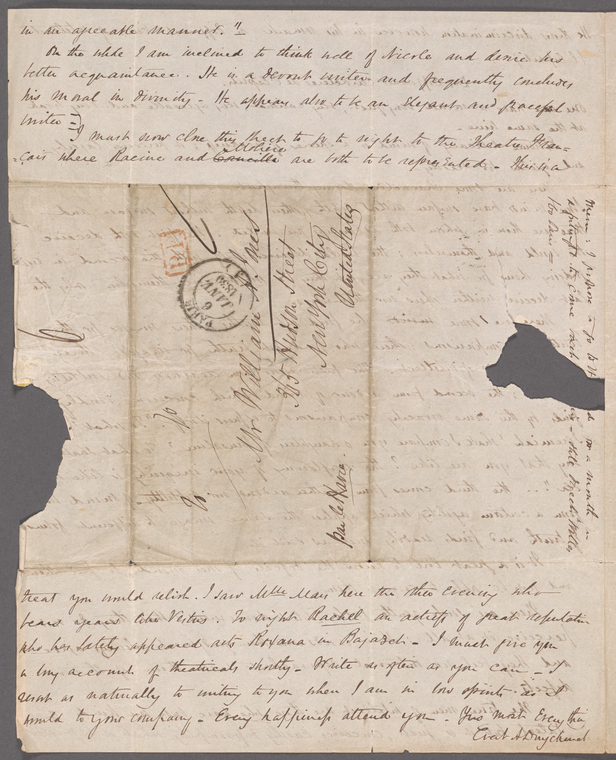 in an agreeable manner."
On the while I am inclined to think well of Nicole and desire his
better acquaintance. He is a devout writer and frequently concludes
his moral in Divinity - He appears also to be an elegant and graceful
writer -
I must now close this sheet to go to night to the Theatre Fran-
çais where Racine and Corneille Moliere are both to be represented - This is a
Mr William A. Jones
Hudson Street
New York City
United States
par le Havre
PARIS
6
JANV.
1839
P.P.
month in
treat you would relish. I saw Mlle Mars here the other evening who
bears years like Vestris. To night Rachel an actress of great reputation
who has lately appeared acts Roxana in Bajazet - I must give you
a long account of theatricals shortly - Write as often as you can - I
resort as naturally to writing to you when I am in low spirits as I
would to your company - Every happiness attend you. Yrs most Everything
Evert A Duyckinck